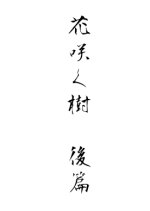 花咲く樹 後篇